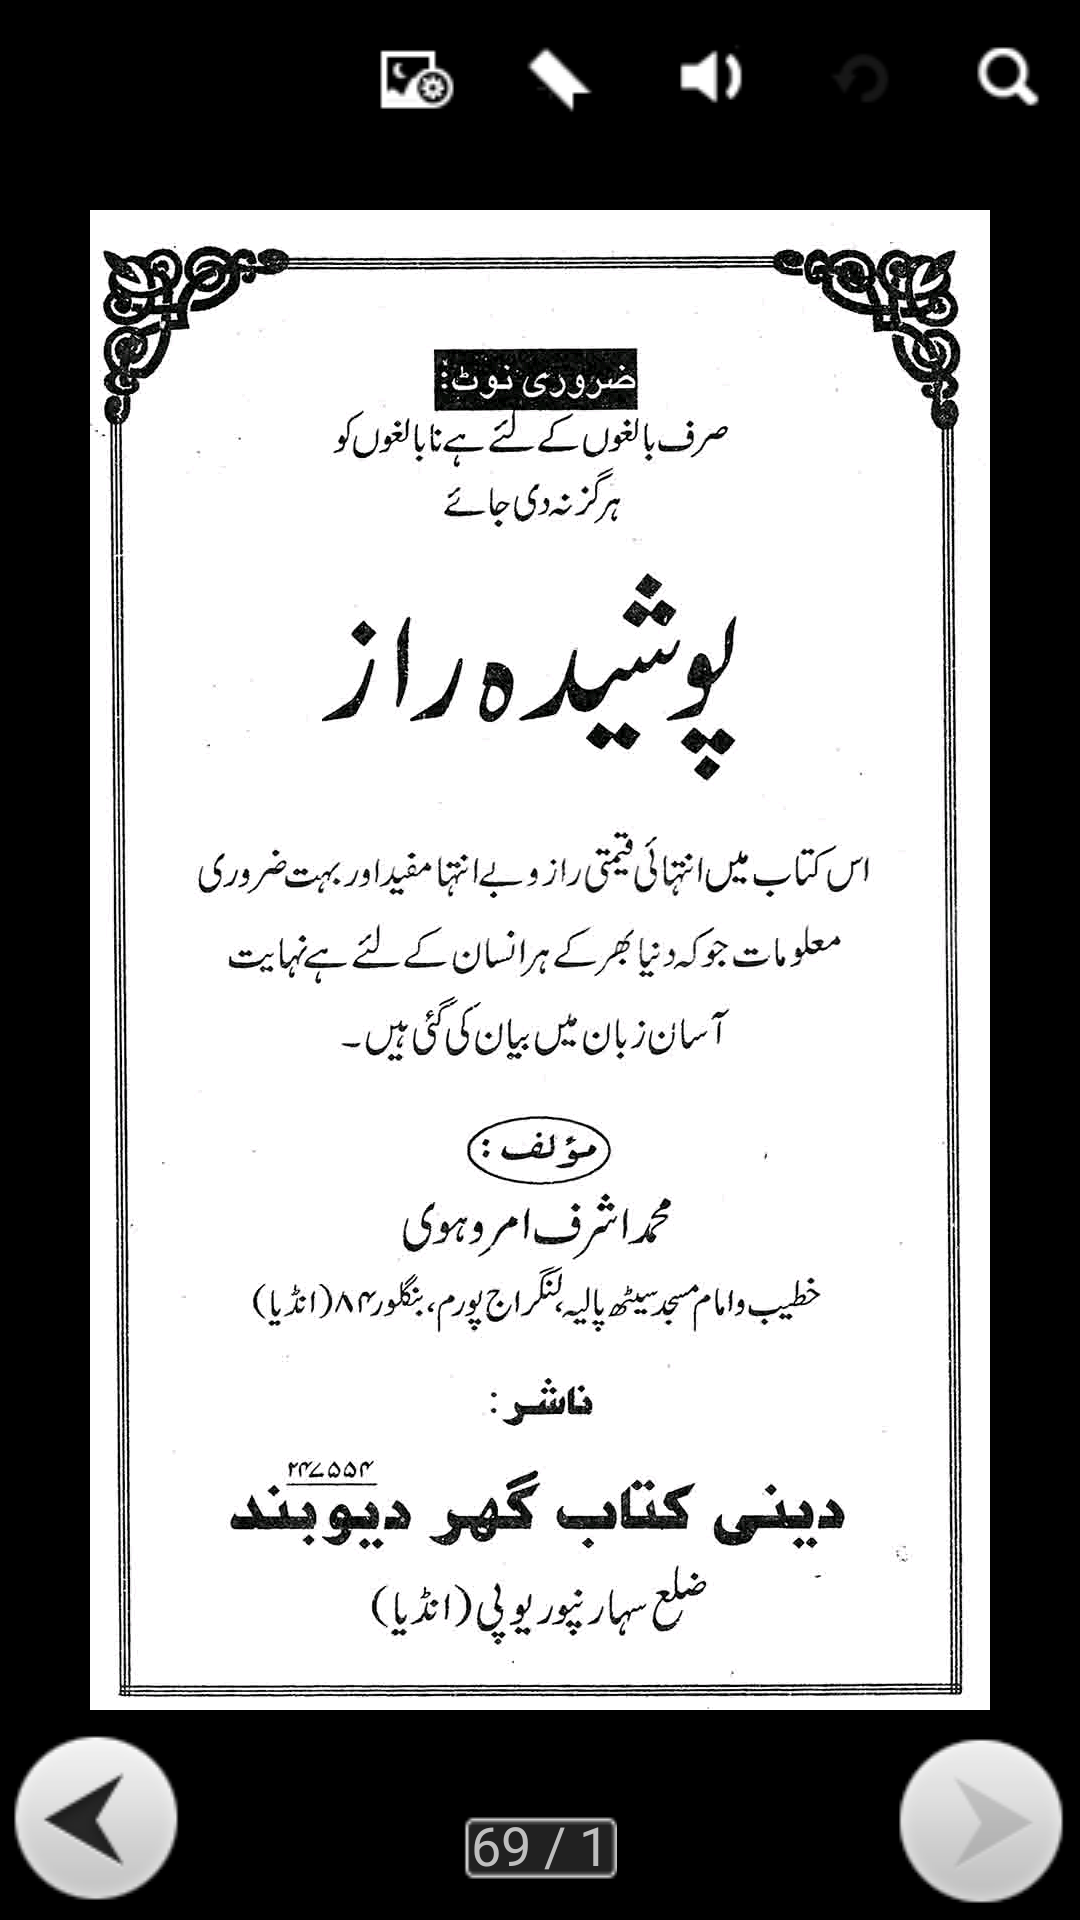 ضروری نوٹ:
صرف بالغوں کے لئے ہے نابالغوں کو
ہرگز نہ دی جائے
پوشیدہ راز
اس کتاب میں انتہائی قیمتی راز و بے انتہا مفید اور بہت ضروری
معلومات جو کہ دنیا بھر کے ہر انسان کے لئے ہے نہایت
آسان زبان میں بیان کی گئی ہیں۔
مؤلف:
محمد اشرف امروہوی
خطیب و امام مسجد سیٹھ پالیہ، لنگراج پورم، بنگلور ۸۴ (انڈیا)
ناشر:
۲۴۷۵۵۴
دینی کتاب گھر دیوبند
ضلع سہارنپور یوپی (انڈیا)
69 / 1